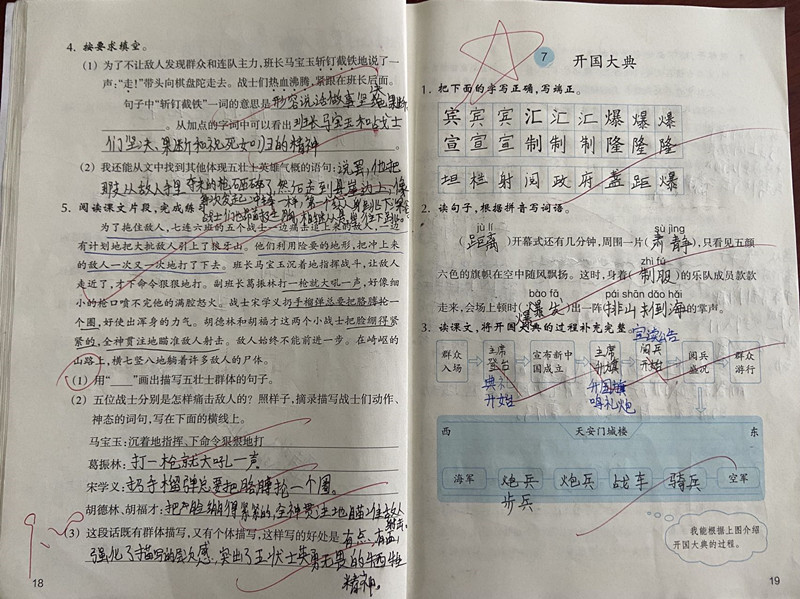 4. 按要求填空。
(1) 为了不让敌人发现群众和连队主力,班长马宝玉斩钉截铁地说了一
声:“走!”带头向棋盘陀走去。战士们热血沸腾,紧跟在班长后面。
句子中“斩钉截铁”一词的意思是形容说话做事坚决果断
。从加点的字词中可以看出班长马宝玉和战士
们坚决、果断和视死如归的精神。
(2) 我还能从文中找到其他体现五壮士英雄气概的语句:说罢,他把
那支从敌人手里夺来的枪砸碎了,然后走到悬崖边上,像
每次发起冲锋一样,第一个纵身跳下深谷。
战士们也昂首挺胸,相继从悬崖往下跳。
5. 阅读课文片段,完成练
为了拖住敌人,七连六班的五个战士一边痛击追上来的敌人,一边
有计划地把大批敌人引上了狼牙山。他们利用险要的地形,把冲上来
的敌人一次又一次地打了下去。班长马宝玉沉着地指挥战斗,让敌人
走近了,才下命令狠狠地打。副班长葛振林打一枪就大吼一声,好像细
小的枪口喷不完他的满腔怒火。战士宋学义扔手榴弹总要把胳膊抡一
个圈,好使出浑身的力气。胡德林和胡福才这两个小战士把脸绷得紧
紧的,全神贯注地瞄准敌人射击。敌人始终不能前进一步。在崎岖的
山路上,横七竖八地躺着许多敌人的尸体。
(1) 用“——”画出描写五壮士群体的句子。
(2) 五位战士分别是怎样痛击敌人的?照样子,摘录描写战士们动作、
神态的词句,写在下面的横线上。
马宝玉:沉着地指挥、下命令狠狠地打
葛振林:打一枪就大吼一声
宋学义:扔手榴弹总要把胳膊抡一个圈。
胡德林、胡福才:把脸绷得紧紧的,全神贯注地瞄准敌人
射击。
(3) 这段话既有群体描写,又有个体描写,这样写的好处是有点有面,
强化了描写的层次感,突出了五壮士英勇无畏的牺牲
精神。
18
7
开国大典
1. 把下面的字写正确,写端正。
宾 宾 宾 汇 汇 汇 爆 爆 爆
宣 宣 宣 制 制 制 隆 隆 隆
坦 栏 射 阅 政 府 盏 距 爆
2. 读句子,根据拼音写词语。
jù lí sù jìng
(距离)开幕式还有几分钟,周围一片(肃静),只看见五颜
zhì fú
六色的旗帜在空中随风飘扬。这时,身着(制服)的乐队成员款款
bào fā pái shān dǎo hǎi
走来,会场上顿时(爆发)出一阵(排山倒海)的掌声。
爆
3. 读课文,将开国大典的过程补充完整。
宣读公告
群众入场 主席登台 宣布新中国成立 主席升旗 阅兵开始 阅兵盛况 群众游行
典礼开始
升国旗
鸣礼炮
西 天安门城楼 东
海军 炮兵 炮兵 战车 骑兵 空军
步兵
我能根据上图介绍
开国大典的过程。
19